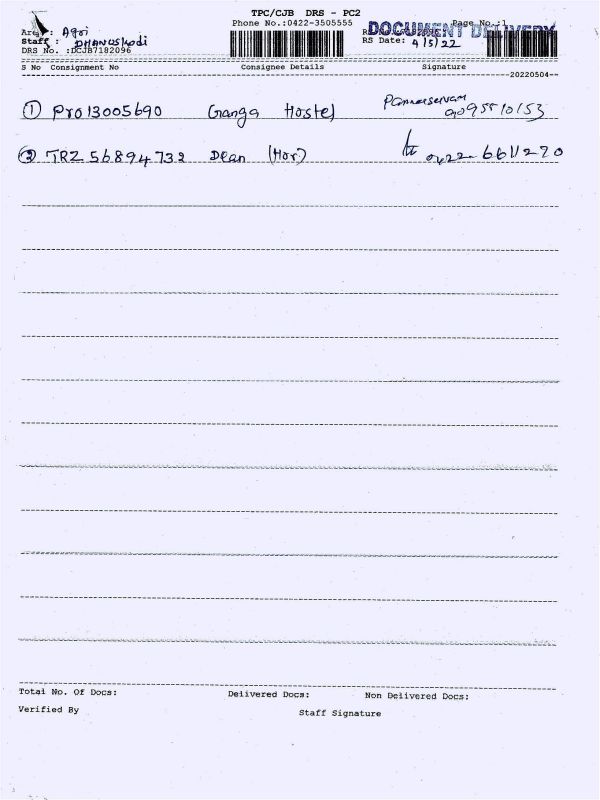 TPC/CJB DRS - PC2
Phone No.:0422-3505555 Page No.:1
DOCUMENT DELIVERY
Area : Agri
Staff : DHANUSKodi RS Date: 4/5/22
DRS No. :DCJB7182096
S No Consignment No Consignee Details Signature
20220504
① Pro13005690 Ganga Hostel
② TRZ 56894732 Dean (Hor) 0422-6611270
Total No. Of Docs: Delivered Docs: Non Delivered Docs:
Verified By Staff Signature